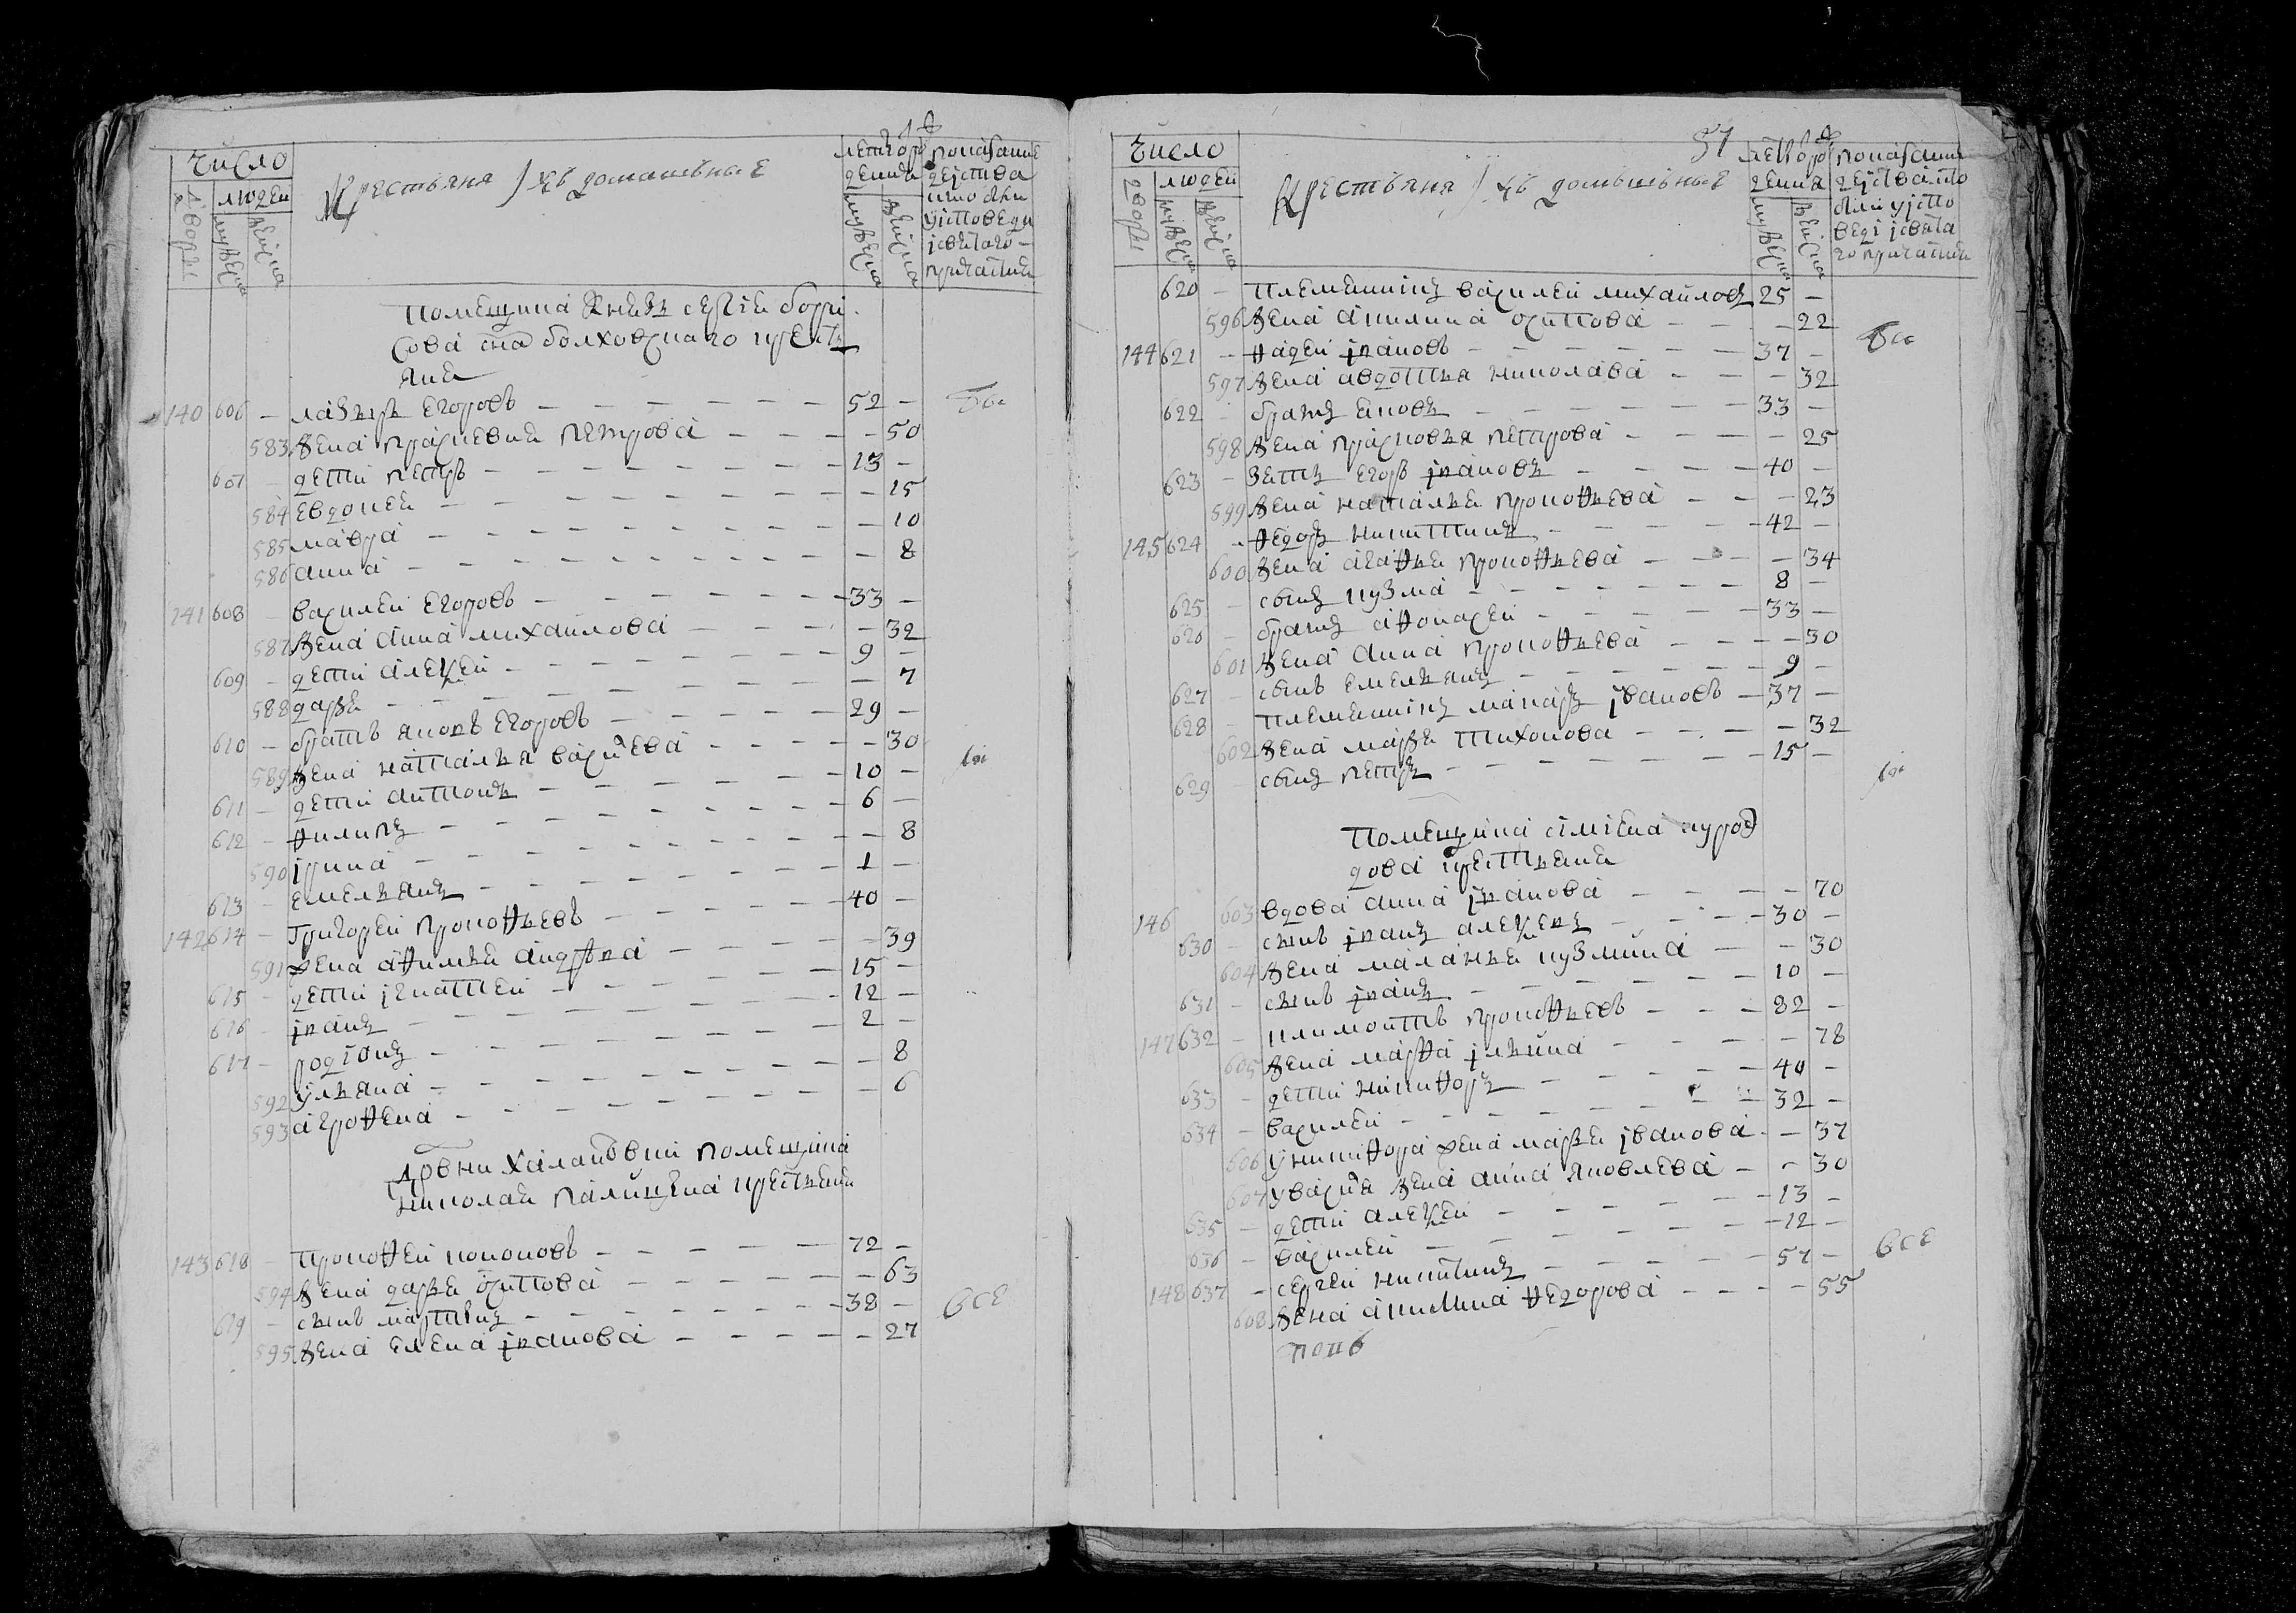 число
людей
дворы
мужеска
женска
Крестьяня / ихъ домашъные
лет ѡтро
жденія
мужеска
женска
показаніе
действа
кто былъ
уісповеди
ісвятаго
причастия
помещика князь сергія бори
сова сна болховскаго кресть
яня
140 606 – лазырь егоровъ – 52 –
583 жена праскевия петрова – 50
607 – дети петръ – 13 –
584 евдокея – 15
585 мавра – 10
586 анна – 8
141 608 – василей егоровъ – 33 –
587 жена анна михаилова – 32
609 – дети алеѯей – 9 –
588 дарья – 7
610 – братъ яковъ егоровъ – 29 –
589 жена наталья васильева – 30
611 – дети антонъ – 10 –
612 – филипъ – 6 –
590 ірина – 8
613 – емельянъ – 1 –
142 614 – григорей прокофьевъ – 40 –
591 жена афимья андреева – 39
615 – дети ігнатей – 15 –
616 – іванъ – 12 –
617 – родіонъ – 2 –
592 ульяна – 8
593 агрофена – 6
дрвни халаповки помещика
николая палицына крестьяня
143 618 – прокофей кононовъ – 72 –
594 жена дарья ѻсипова – 63
619 – сынъ мартинъ – 38 –
595 жена елена іванова – 27
все
57
число
людей
дворы
мужеска
женска
Крестьяня / ихъ домашъные
лет ѡтро
жденія
мужеска
женска
показания
действа кто
были уіспо
веді ісвята
го причастия
620 – племянникъ василей михайловъ 25 –
596 жена акилина осипова – 22
144 621 – фадей івановъ – 37 –
597 жена авдотья николава – 32
622 – братъ яковъ – 33 –
598 жена прасковья петрова – 25
623 – зять егоръ івановъ – 40 –
599 жена наталья прокофьева – 23
145 624 – федоръ никитинъ – 42 –
600 жена агафья прокофьева – 34
625 – сынъ кузма – 8 –
626 – братъ афонасей – 33 –
601 жена анна прокофьева – 30
627 – сынъ емельянъ – 9 –
628 – племянникъ макаръ івановъ – 37 –
602 жена марья тихонова – 32
629 – сынъ петръ – 15 –
помещика симіона куроѣ
дова крестьяня
146 603 вдова анна іванова – 70
630 – сынъ іванъ алеѯеев – 30 –
604 жена маланья кузмина – 30
631 – сынъ іванъ – 10 –
147 632 – климонтъ прокофьевъ – 82 –
605 жена марфа ільина – 78
633 – дети никифоръ – 40 –
634 – василей – 32 –
606 уникифора жена марья іванова – 37
607 увасилья жена анна яковлева – 30
635 – дети алеѯей – 13 –
636 – василей – 12 –
148 637 – сергей никитинъ – 57 –
608 жена акилина федорова – 55
все
попъ